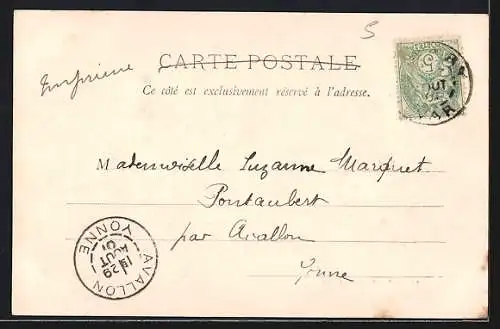 5
CARTE POSTALE
Imprimé
Ce côté est exclusivement réservé à l'adresse.
Mademoiselle Suzanne Marquet
Pontaubert
par Avallon
Yonne
AVALLON
YONNE
29
AOUT
01